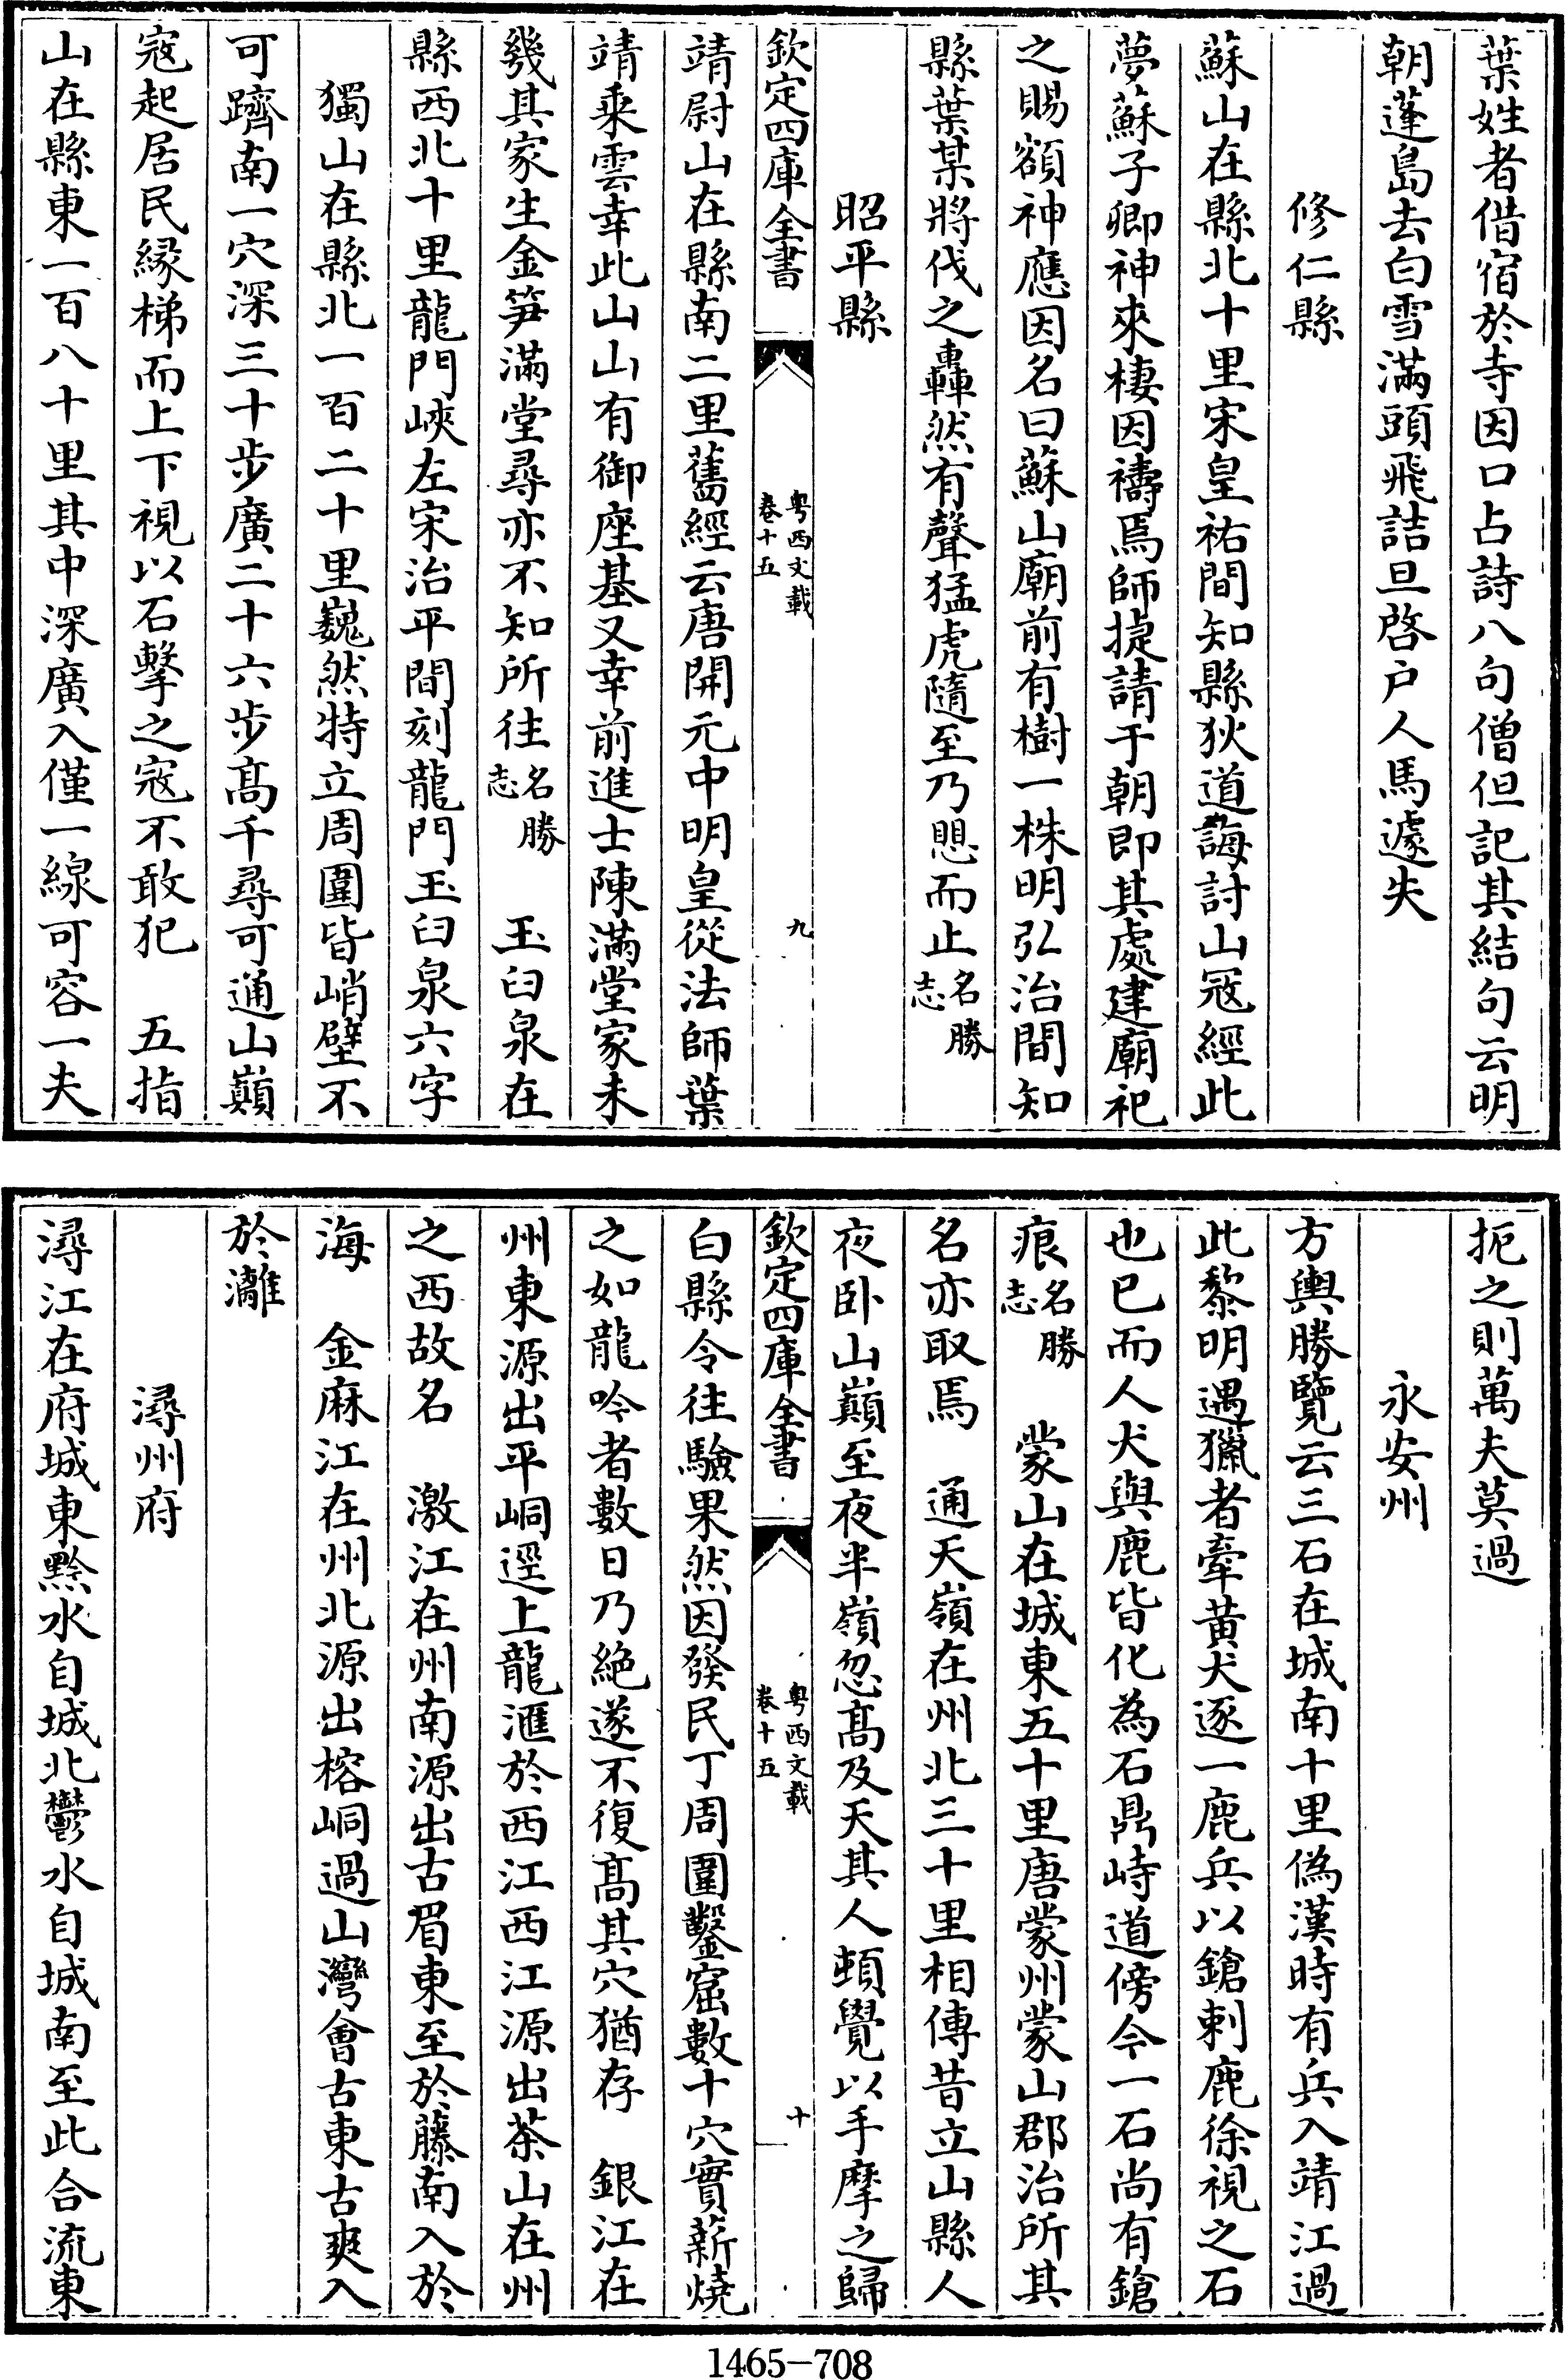 葉姓者借宿於寺因口占詩八句僧但記其結句云明
朝蓬島去白雪滿頭飛詰旦啓户人馬遽失
修仁縣
蘇山在縣北十里宋皇祐間知縣狄道誨討山冦經此
夢蘇子卿神來棲因禱焉師捷請于朝即其處建廟祀
之賜額神應因名曰蘇山廟前有樹一株明弘治間知
縣葉某將伐之轟然有聲猛虎隨至乃愳而止名勝志
昭平縣
欽定四庫全書 粤西文載 卷十五 九
靖尉山在縣南二里舊經云唐開元中明皇從法師葉
靖乘雲幸此山山有御座基又幸前進士陳滿堂家未
幾其家生金笋滿堂尋亦不知所往名勝志 玉臼泉在
縣西北十里龍門峽左宋治平間刻龍門玉臼泉六字
獨山在縣北一百二十里巍然特立周圍皆峭壁不
可躋南一穴深三十步廣二十六步髙千尋可通山巔
寇起居民縁梯而上下視以石擊之寇不敢犯 五指
山在縣東一百八十里其中深廣入僅一線可容一夫
扼之則萬夫莫過
永安州
方輿勝覽云三石在城南十里偽漢時有兵入靖江過
此黎明遇獵者牽黄犬逐一鹿兵以鎗刺鹿徐視之石
也已而人犬與鹿皆化為石鼎峙道傍今一石尚有鎗
痕名勝志 蒙山在城東五十里唐蒙州蒙山郡治所其
名亦取焉 通天嶺在州北三十里相傳昔立山縣人
夜卧山巔至夜半嶺忽髙及天其人頓覺以手摩之歸
欽定四庫全書 粤西文載 卷十五 十
白縣令往驗果然因發民丁周圍鑿窟數十穴實薪燒
之如龍吟者數日乃絶遂不復髙其穴猶存 銀江在
州東源出平峒逕上龍滙於西江西江源出茶山在州
之西故名 激江在州南源出古眉東至於藤南入於
海 金麻江在州北源出榕峒過山灣會古東古爽入
於灕
潯州府
潯江在府城東黔水自城北鬱水自城南至此合流東
1465-708